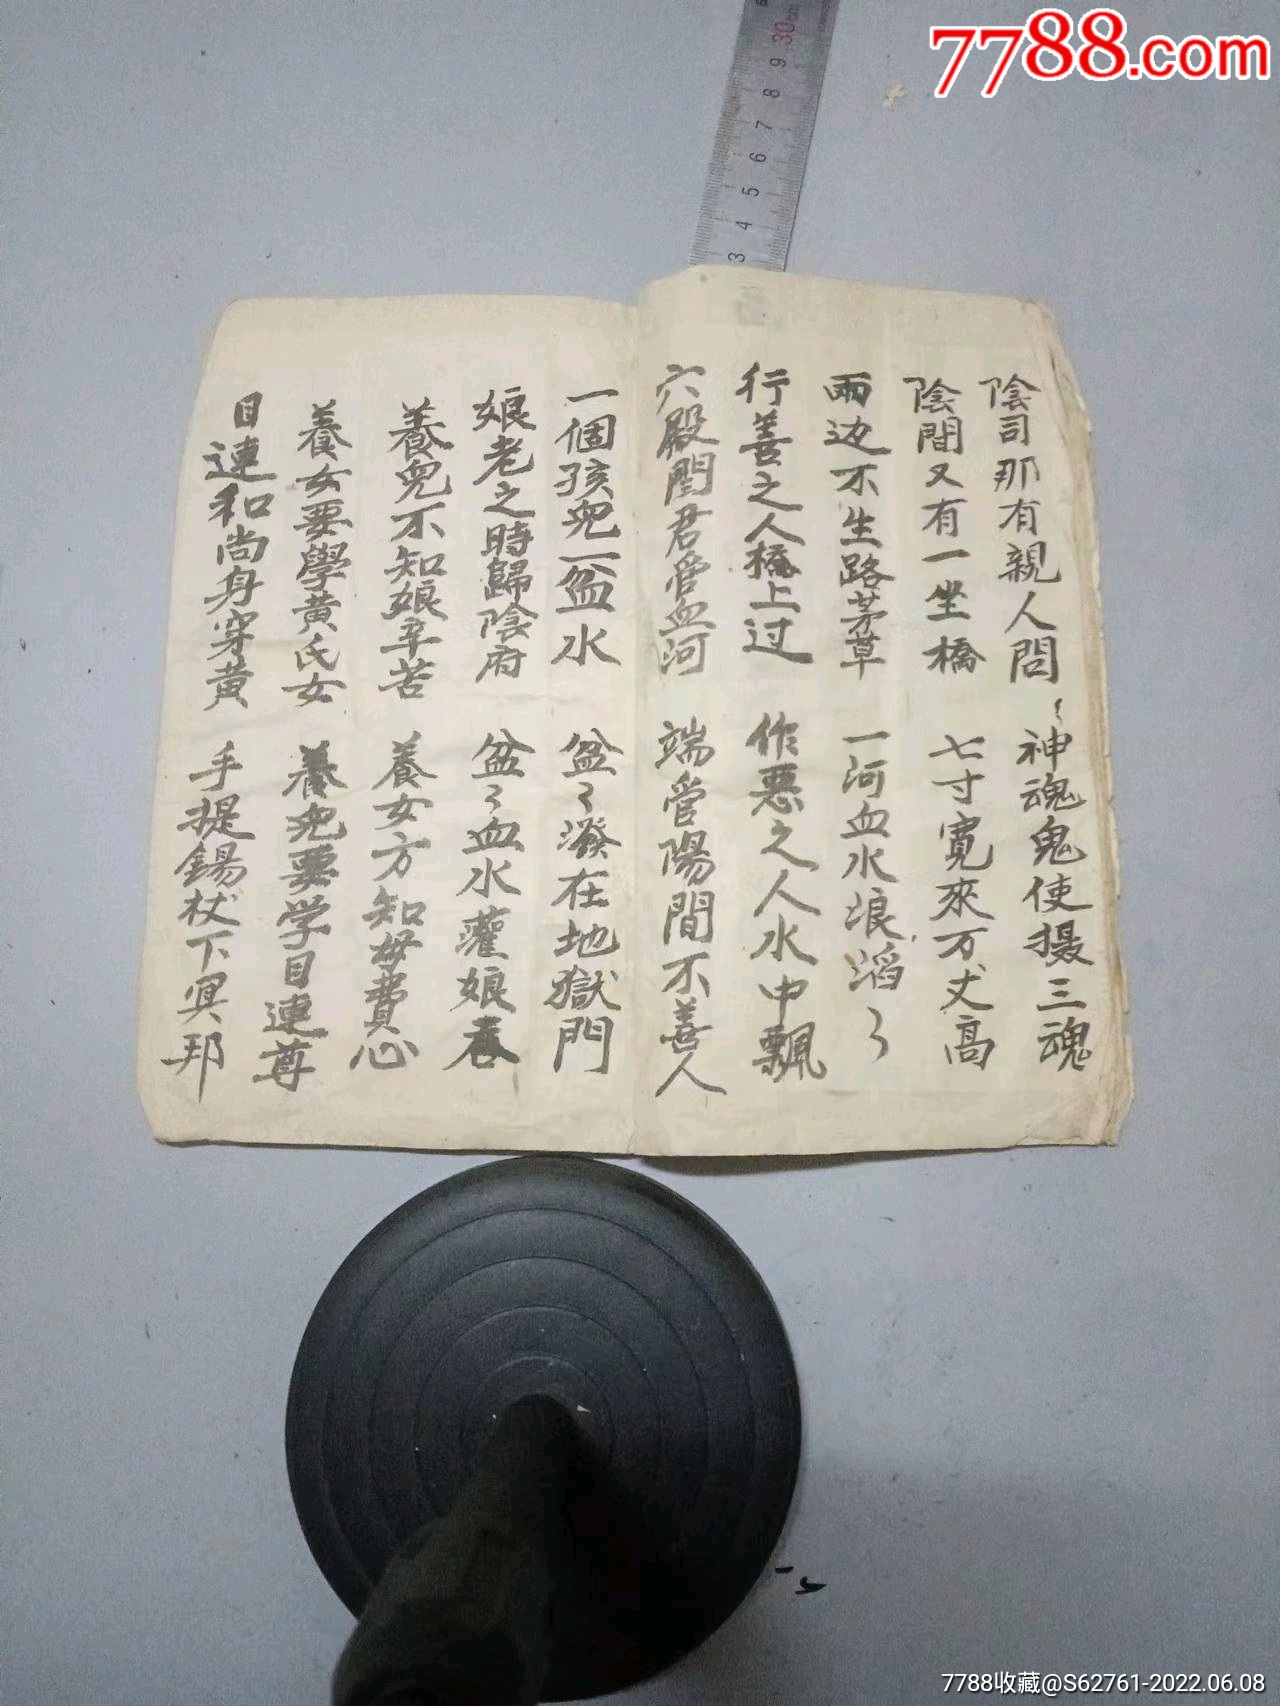 7788.com
30cm
9
8
7
6
5
4
3
陰司那有親人問 〻神魂鬼使摄三魂
陰間又有一坐橋 七寸寬來万丈高
兩边不生路茅草 一河血水浪滔〻
行善之人橋上过 作惡之人水中飄
六殿閻君管血河 端管陽間不善人
一個孩兒一盆水 盆〻潑在地獄門
娘老之時歸陰府 盆〻血水灌娘吞
養兒不知娘辛苦 養女方知母費心
養女要學黄氏女 養兒要学目連尊
目連和尚身穿黄 手提錫杖下冥邦
7788收藏@S62761-2022.06.08